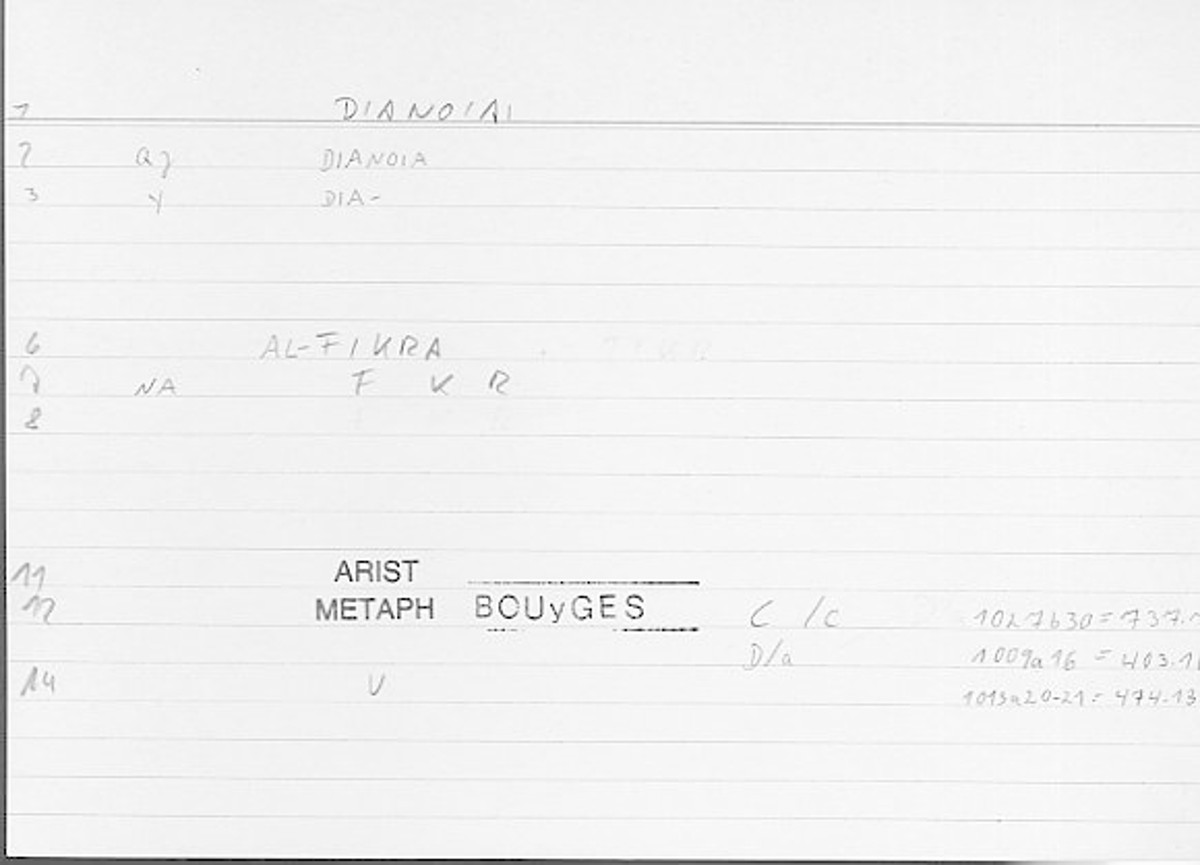 1 DIANOIAI
2 DIANOIA
3 Y DIA-
6 AL-FIKRA
7 NA F K R
8
11 ARIST
12 METAPH BOUyGES C /C 1027b30=737.
D/a 1009a16 = 403.1
14 V 1013a20-21= 474.13